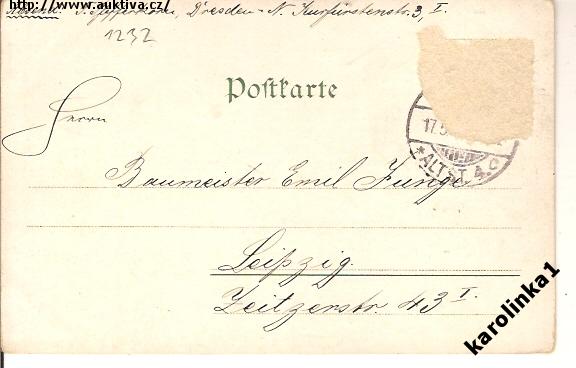 http://www.auktiva.cz/
Dresden-N. Kurfürstenstr. 3, I.
1232
Postkarte
17.5
*ALTST. 4. C
Herrn
Baumeister Emil Junge
Leipzig.
Zeitzerstr. 43 I.
karolinka1